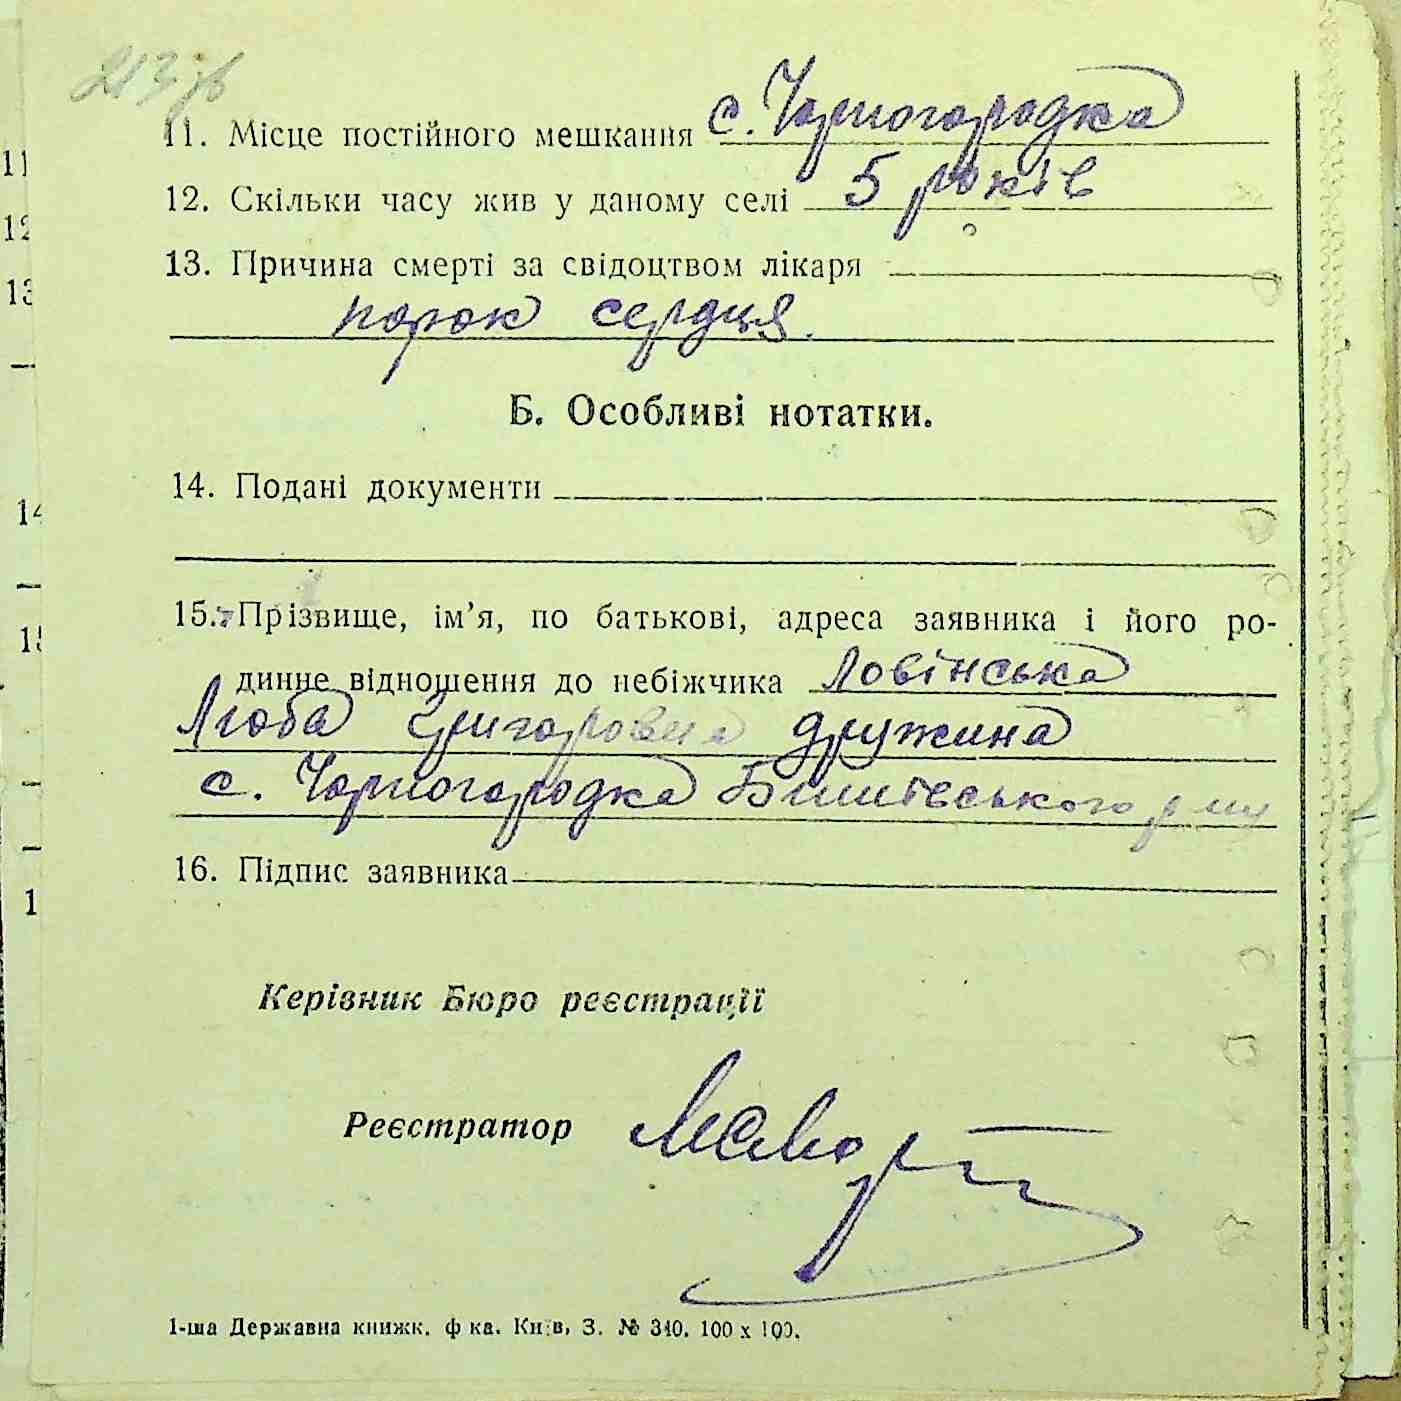 213 зв
11. Місце постійного мешкання с. Чорногородка
12. Скільки часу жив у даному селі 5 років
13. Причина смерті за свідоцтвом лікаря
порок сердця.
Б. Особливі нотатки.
14. Подані документи
15. Прізвище, ім’я, по батькові, адреса заявника і його ро-
динне відношення до небіжчика Ловінська
Люба Григоровна дружина
с. Чорногородка Бишівського р-ну
16. Підпис заявника
Керівник Бюро реєстрації
Реєстратор
1-ша Державна книжк. ф ка. Київ, З. № 340. 100 х 100.
11
12
13
14
15
1